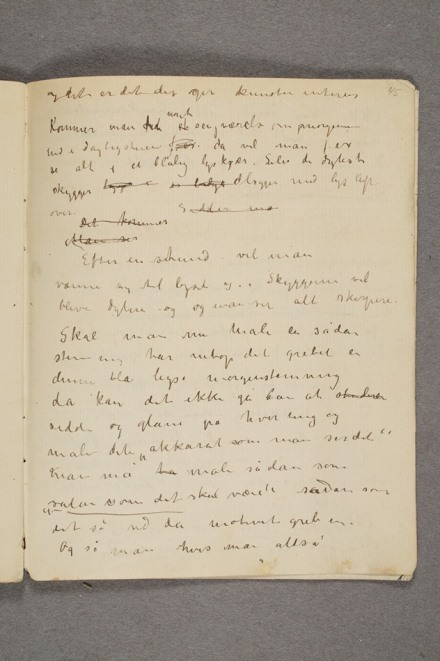 og det er det der gjør kunsten interes
45
Kommer man fra et mørkt soveværelse om morgenen
ind i dagligstuen da vil man f. ex
se alt i et blålig lyskjær. Selv de dybeste
skygger ligger med lys luft
over.
Det kommer
Man ser
Efter en stund vil man
vænne sig til lyset og Skyggerne vil
blive dybere og og man ser alt skarpere.
Skal man nu male en sådan
stemning har netop det grebet en
denne blålyse morgenstemning
da kan det ikke gå bare at
sidde og glane på hver ting og
male det „akkurat som man ser det"
Man må male sådan som
det skal være sådan som
det så ud da motivet greb en.
Og så man hvis man altså